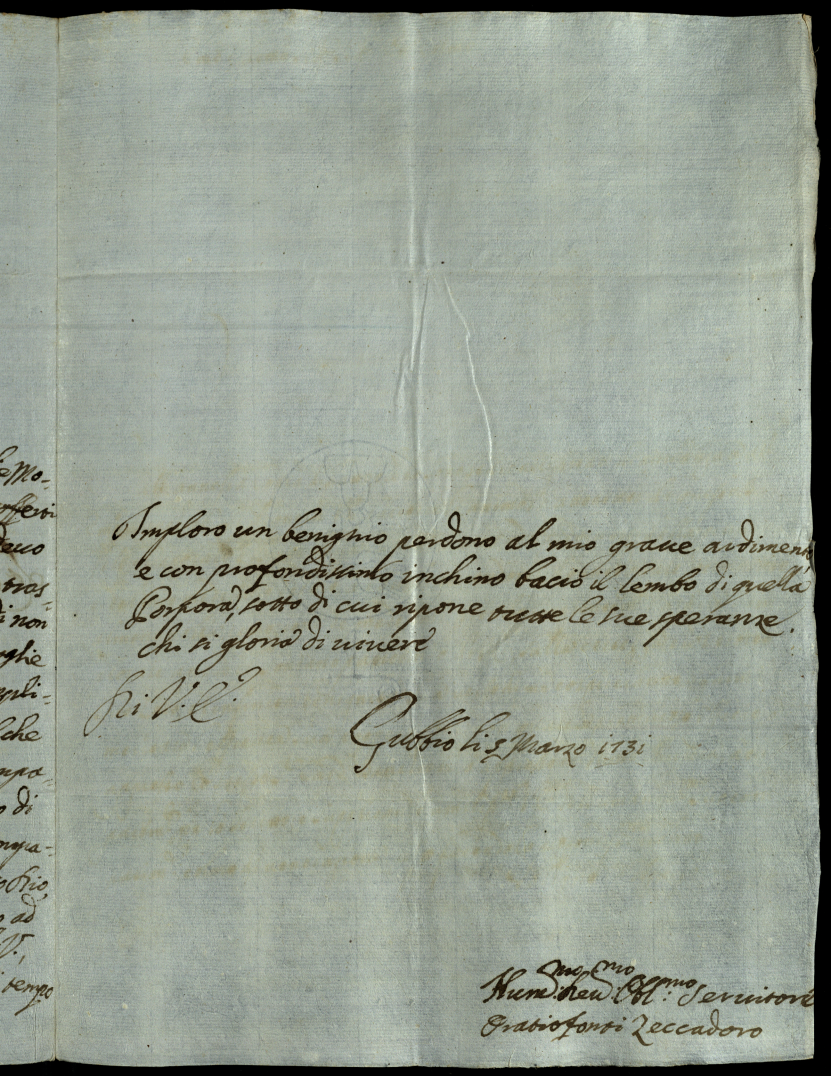 e Mo-
deuo
tras-
di non
oglie
mpli-
che
mpa-
o di
mpa-
o ad
V.,
tempo
Imploro un benignio perdono al mio graue ardimento
e con profondissimo inchino bacio il lembo di quella
Porpora, sotto di cui ripone tutte le sue speranze.
chi si gloria di uiuere
Di V.ª E.ª
Gubbio li 5 Marzo 1731
Hum:mo Deu:mo Obl:mo Seruitore
Oratio Fonti Zeccadoro